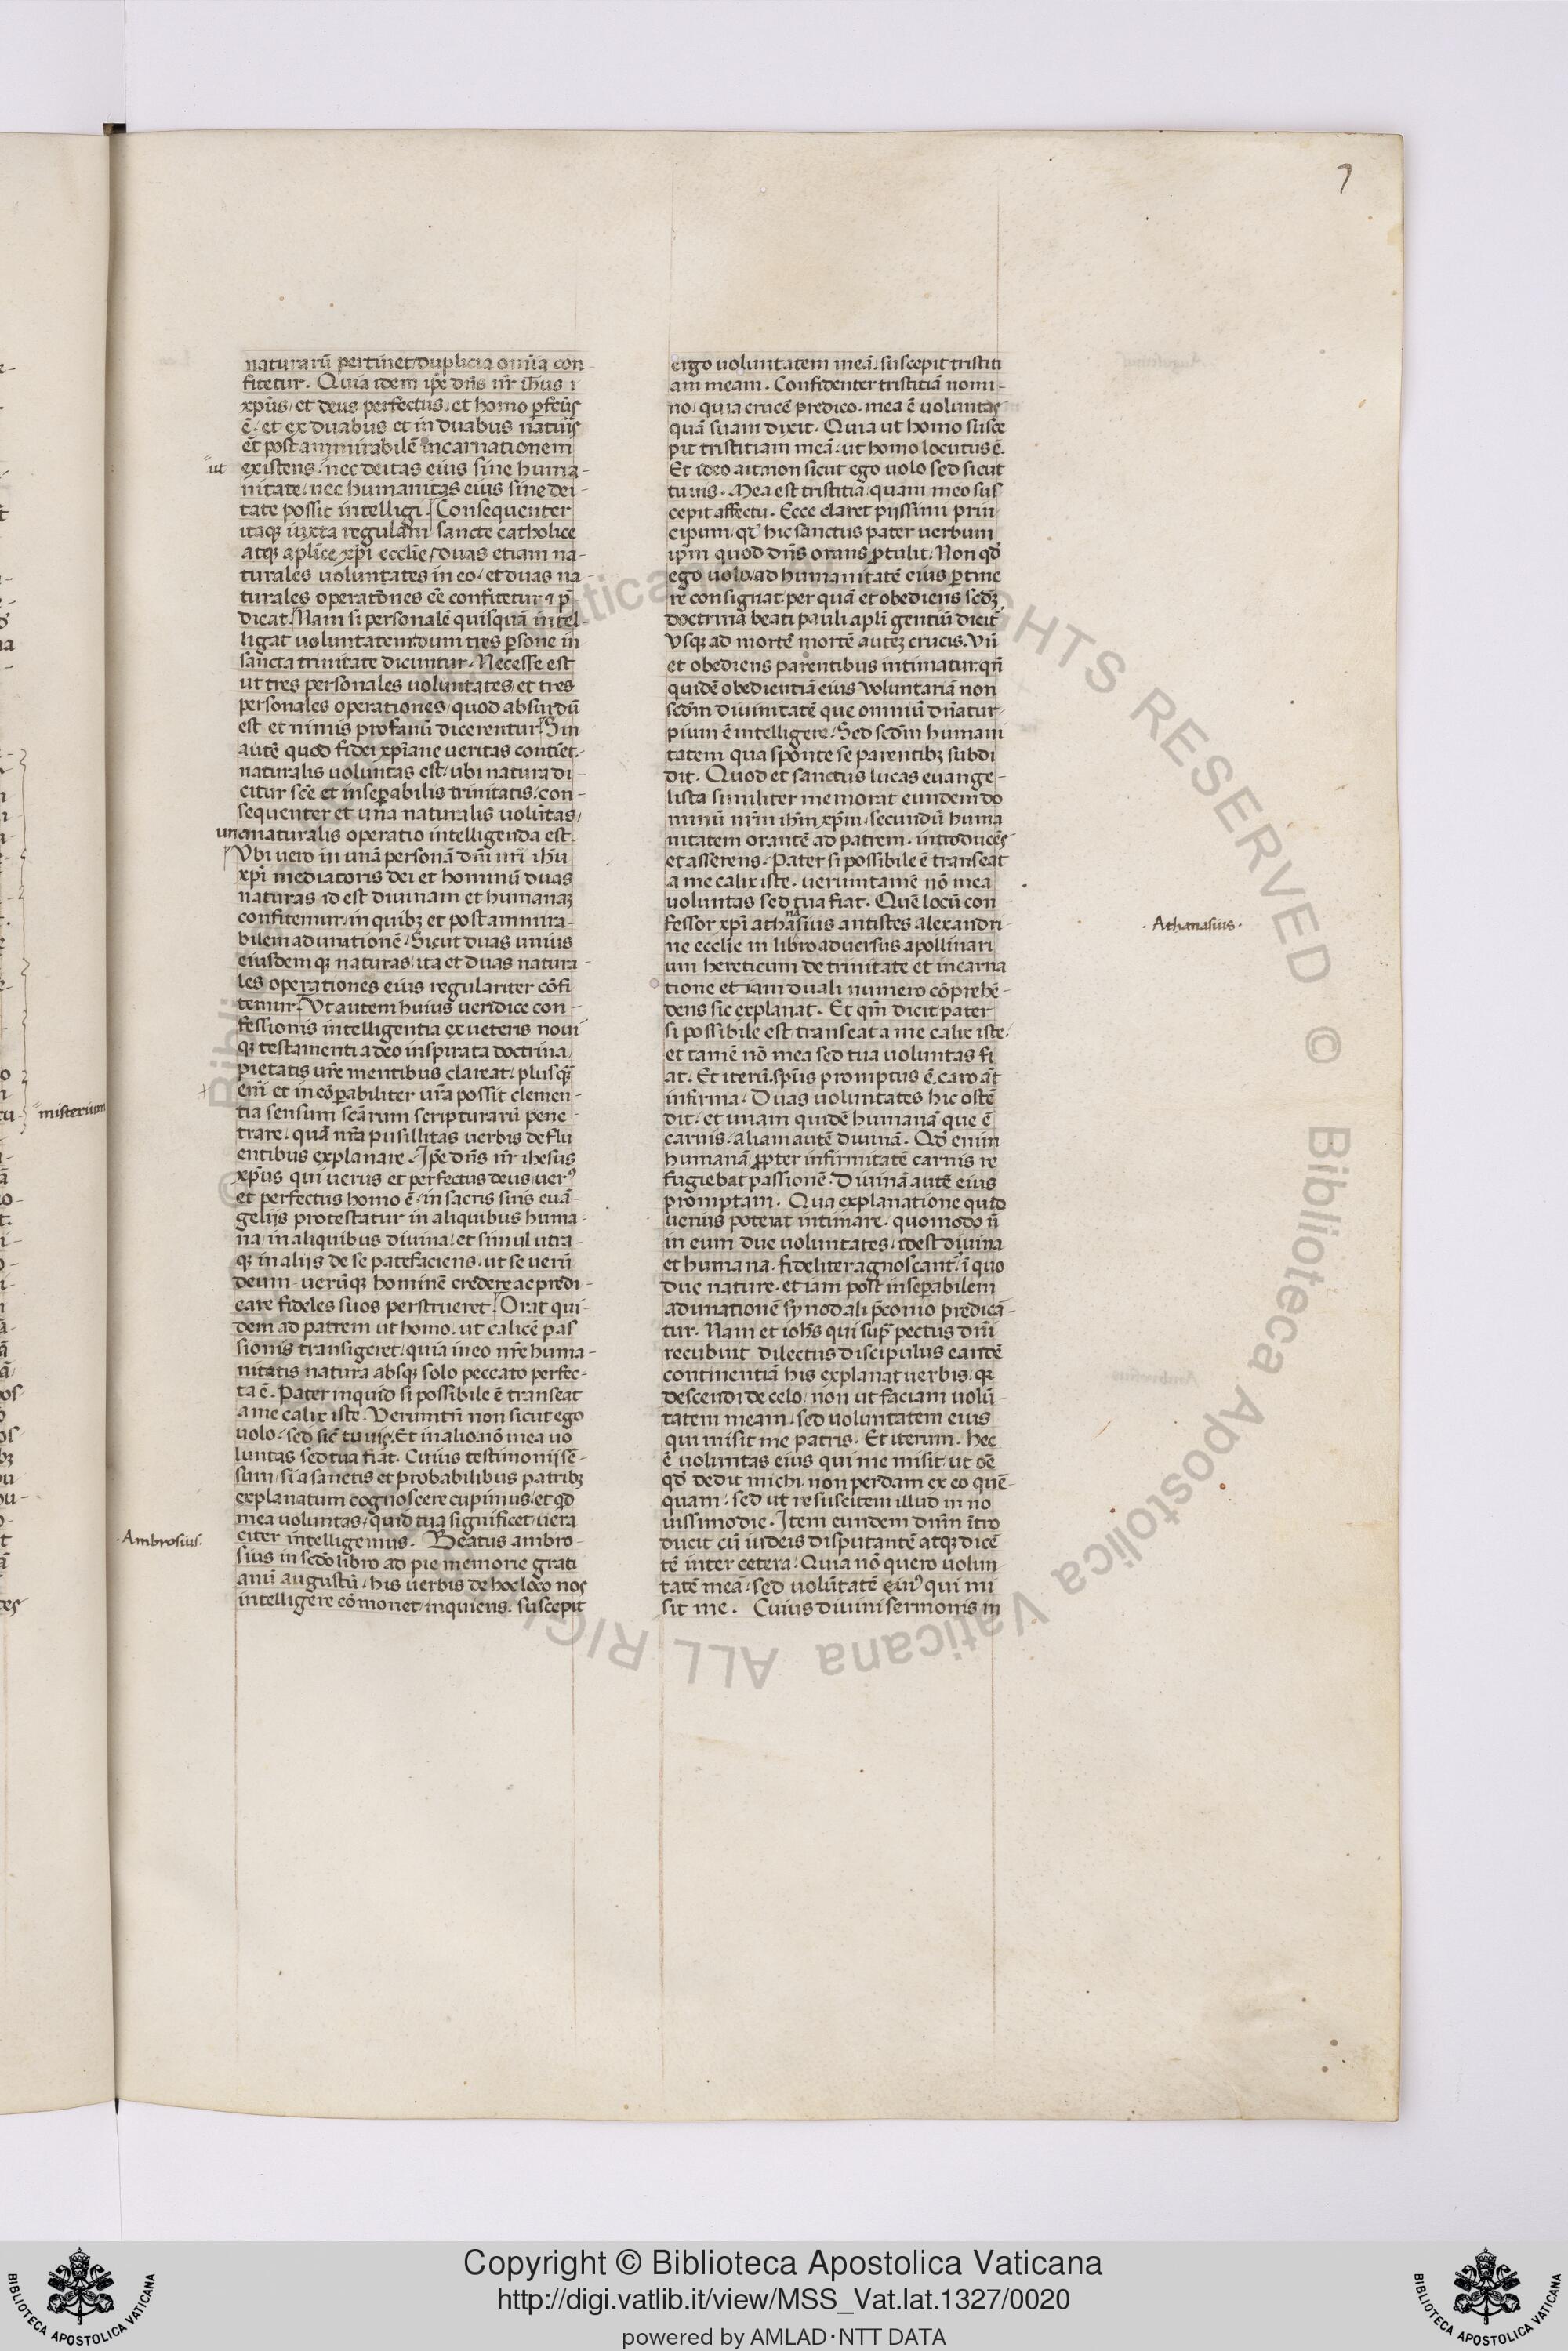 7
naturarū pertinet duplicia omīa con-
fitetur. Quia idem ip̄e dn̄s nr̄ ih̄us
xp̄us et deus perfectus et homo ꝑfc̄us
ē et ex duabus et in duabus natur̄is
et̄ post ammirabilē incarnationem
ut
existens. nec deitas eius sine huma-
nitate nec humanitas eius sine dei-
tate possit intelligi. Consequenter
itaqꝫ iuxta regulam sancte catholice
atqꝫ aplice xp̄i eccl̄ie duas etiam na-
turales voluntates in eo et duas na-
turales operatōnes eē confitetur p̄-
dicat. Nam si personalē quisquā intel-
ligat uoluntatem dum tres ꝑsone in
sancta trinitate dicuntur. Necesse est
ut tres personales uoluntates et tres
personales operationes quod absurdū
est et nimis profanū dicerentur. Sin
autē quod fidei xp̄iane ueritas contīet.
naturalis uoluntas est ubi natura di-
citur sc̄e et insepabilis trinitatis con-
sequenter et una naturalis uolūtas
una naturalis operatio intelligenda est.
Vbi uero in unā personā dn̄i nr̄i ih̄u
xp̄i mediatoris dei et hominū duas
naturas id est diuinam et humanaꝫ
confitemur in quibꝫ et post ammira-
bilem adunationē Sicut duas unius
eiusdem qꝫ naturas ita et duas natura-
les operationes eius regulariter cōfi
temur. Vt autem huius ueridice con-
fessionis intelligentia ex ueteris noui
qꝫ testamenti a deo inspirata doctrina
pietatis ur̄e mentibus clareat. plusqꝫ
eni et incōꝑabiliter ur̄a possit clemen-
tia sensum scārum scripturarū pene
trare. quā nr̄a pusillitas uerbis deflu
entibus explanare. Ip̄e dn̄s nr̄ ihesus
xp̄us qui uerus et perfectus deus uerꝰ
et perfectus homo ē in sacris suis euā-
gelijs protestatur in aliquibus huma-
na in aliquibus diuina et simul utra-
qꝫ in alijs de se patefaciens. ut se uerū
deum uerūqꝫ hominē credere ac predi-
care fideles suos perstrueret. Orat qui-
dem ad patrem ut homo. ut calicē pas
sionis transigeret quia in eo nr̄e huma-
nitatis natura absqꝫ solo peccato perfec-
ta ē. Pater inquid si possibile ē transeat
a me calix iste. Veruntn̄ non sicut ego
uolo. sed sic̄ tu uis. Et in alio nō mea uo
luntas sed tua fiat. Cuius testimonij sē-
sum si a sanctis et probabilibus patribꝫ
explanatum cognoscere cupimus et qd̄
mea uoluntas quid tua significet uera
citer intelligemus. Beatus ambro-
·Ambrosius·
sius in sc̄do libro ad pie memorie grati
anū augustū his uerbis de hoc loco nos
intelligere cōmonet inquiens. suscepit
ergo uoluntatem meā. suscepit tristiti
am meam. Confidenter tristitiā nomi-
no quia crucē predico. mea ē uoluntas
quā suam dixit. Quia ut homo susce
pit tristitiam meā. ut homo locutus ē.
Et ideo ait non sicut ego uolo sed sicut
tu uis. Mea est tristitia quam meo sus
cepit affectu. Ecce claret pijssimi prin
cipum qd̄ hic sanctus pater uerbum
ip̄m quod dn̄s orans ꝓtulit. Non qd̄
ego uolo ad humanitatē eius ꝑtine
re consignat per quā et obediens scd̄ꝫ
doctrinā beati pauli apl̄i gentiū dicit̄
Vsqꝫ ad mortē mortē auteꝫ crucis. Vn̄
et obediens parentibus intimatur qn̄
quidē obedientiā eius voluntariā non
scdm̄ diuinitatē que omniū dn̄atur
pium ē intelligere. Sed scdm̄ humani
tatem qua sponte se parentibꝫ subdi
dit. Quod et sanctus lucas euange-
lista similiter memorat eundem do
minū nr̄m ih̄m xp̄m secundū huma
nitatem orantē ad patrem. introducēs
et asserens. Pater si possibile ē transeat
a me calix iste. ueruntamē nō mea
uoluntas sed tua fiat. Quē locū con-
fessor xp̄i athanasius antistes alexandri-
·Athanasius·
ne eccl̄ie in libro aduersus apollinari
um hereticum de trinitate et incarna
tione et iam duali numero cōprehē-
dens sic explanat. Et qn̄ dicit pater
si possibile est transeat a me calix iste.
et tamē nō mea sed tua uoluntas fi
at. Et iterū. sp̄us promptus ē. caro aūt
infirma. Duas uoluntates hic ostē
dit. et unam quidē humanā que ē
carnis. aliam autē diuinā. Qd̄ enim
humanā ꝓpter infirmitatē carnis re
fugiebat passionē. Diuinā autē eius
promptam. Qua explanatione quid
uerius poterat intimare. quomodo n̄
in eum due uoluntates. idest diuina
et humana. fideliter agnoscant̄. ī quo
due nature. et iam post insepabilem
adunationē synodali p̄conio predicā-
tur. Nam et ioh̄s qui sup̄ pectus dn̄i
recubuit dilectus discipulus eandē
continentiā his explanat uerbis. qꝫ
descendi de celo. non ut faciam uolū-
tatem meam. sed uoluntatem eius
qui misit me patris. Et iterum. hec
ē uoluntas eius qui me misit. ut oē
qd̄ dedit michi non perdam ex eo quē-
quam. sed ut resuscitem illud in no
uissimo die. Item eundem dn̄m ītro
ducit cū iudeis disputantē atqꝫ dicē
tē inter cetera. Quia nō quero uolun-
tatē meā. sed uolūtatē eiuꝰ qui mi
sit me. Cuius diuini sermonis in
misterium
Copyright © Biblioteca Apostolica Vaticana
http://digi.vatlib.it/view/MSS_Vat.lat.1327/0020
powered by AMLAD·NTT DATA
BIBLIOTECA APOSTOLICA VATICANA
BIBLIOTECA APOSTOLICA VATICANA
© Biblioteca Apostolica Vaticana ALL RIGHTS RESERVED